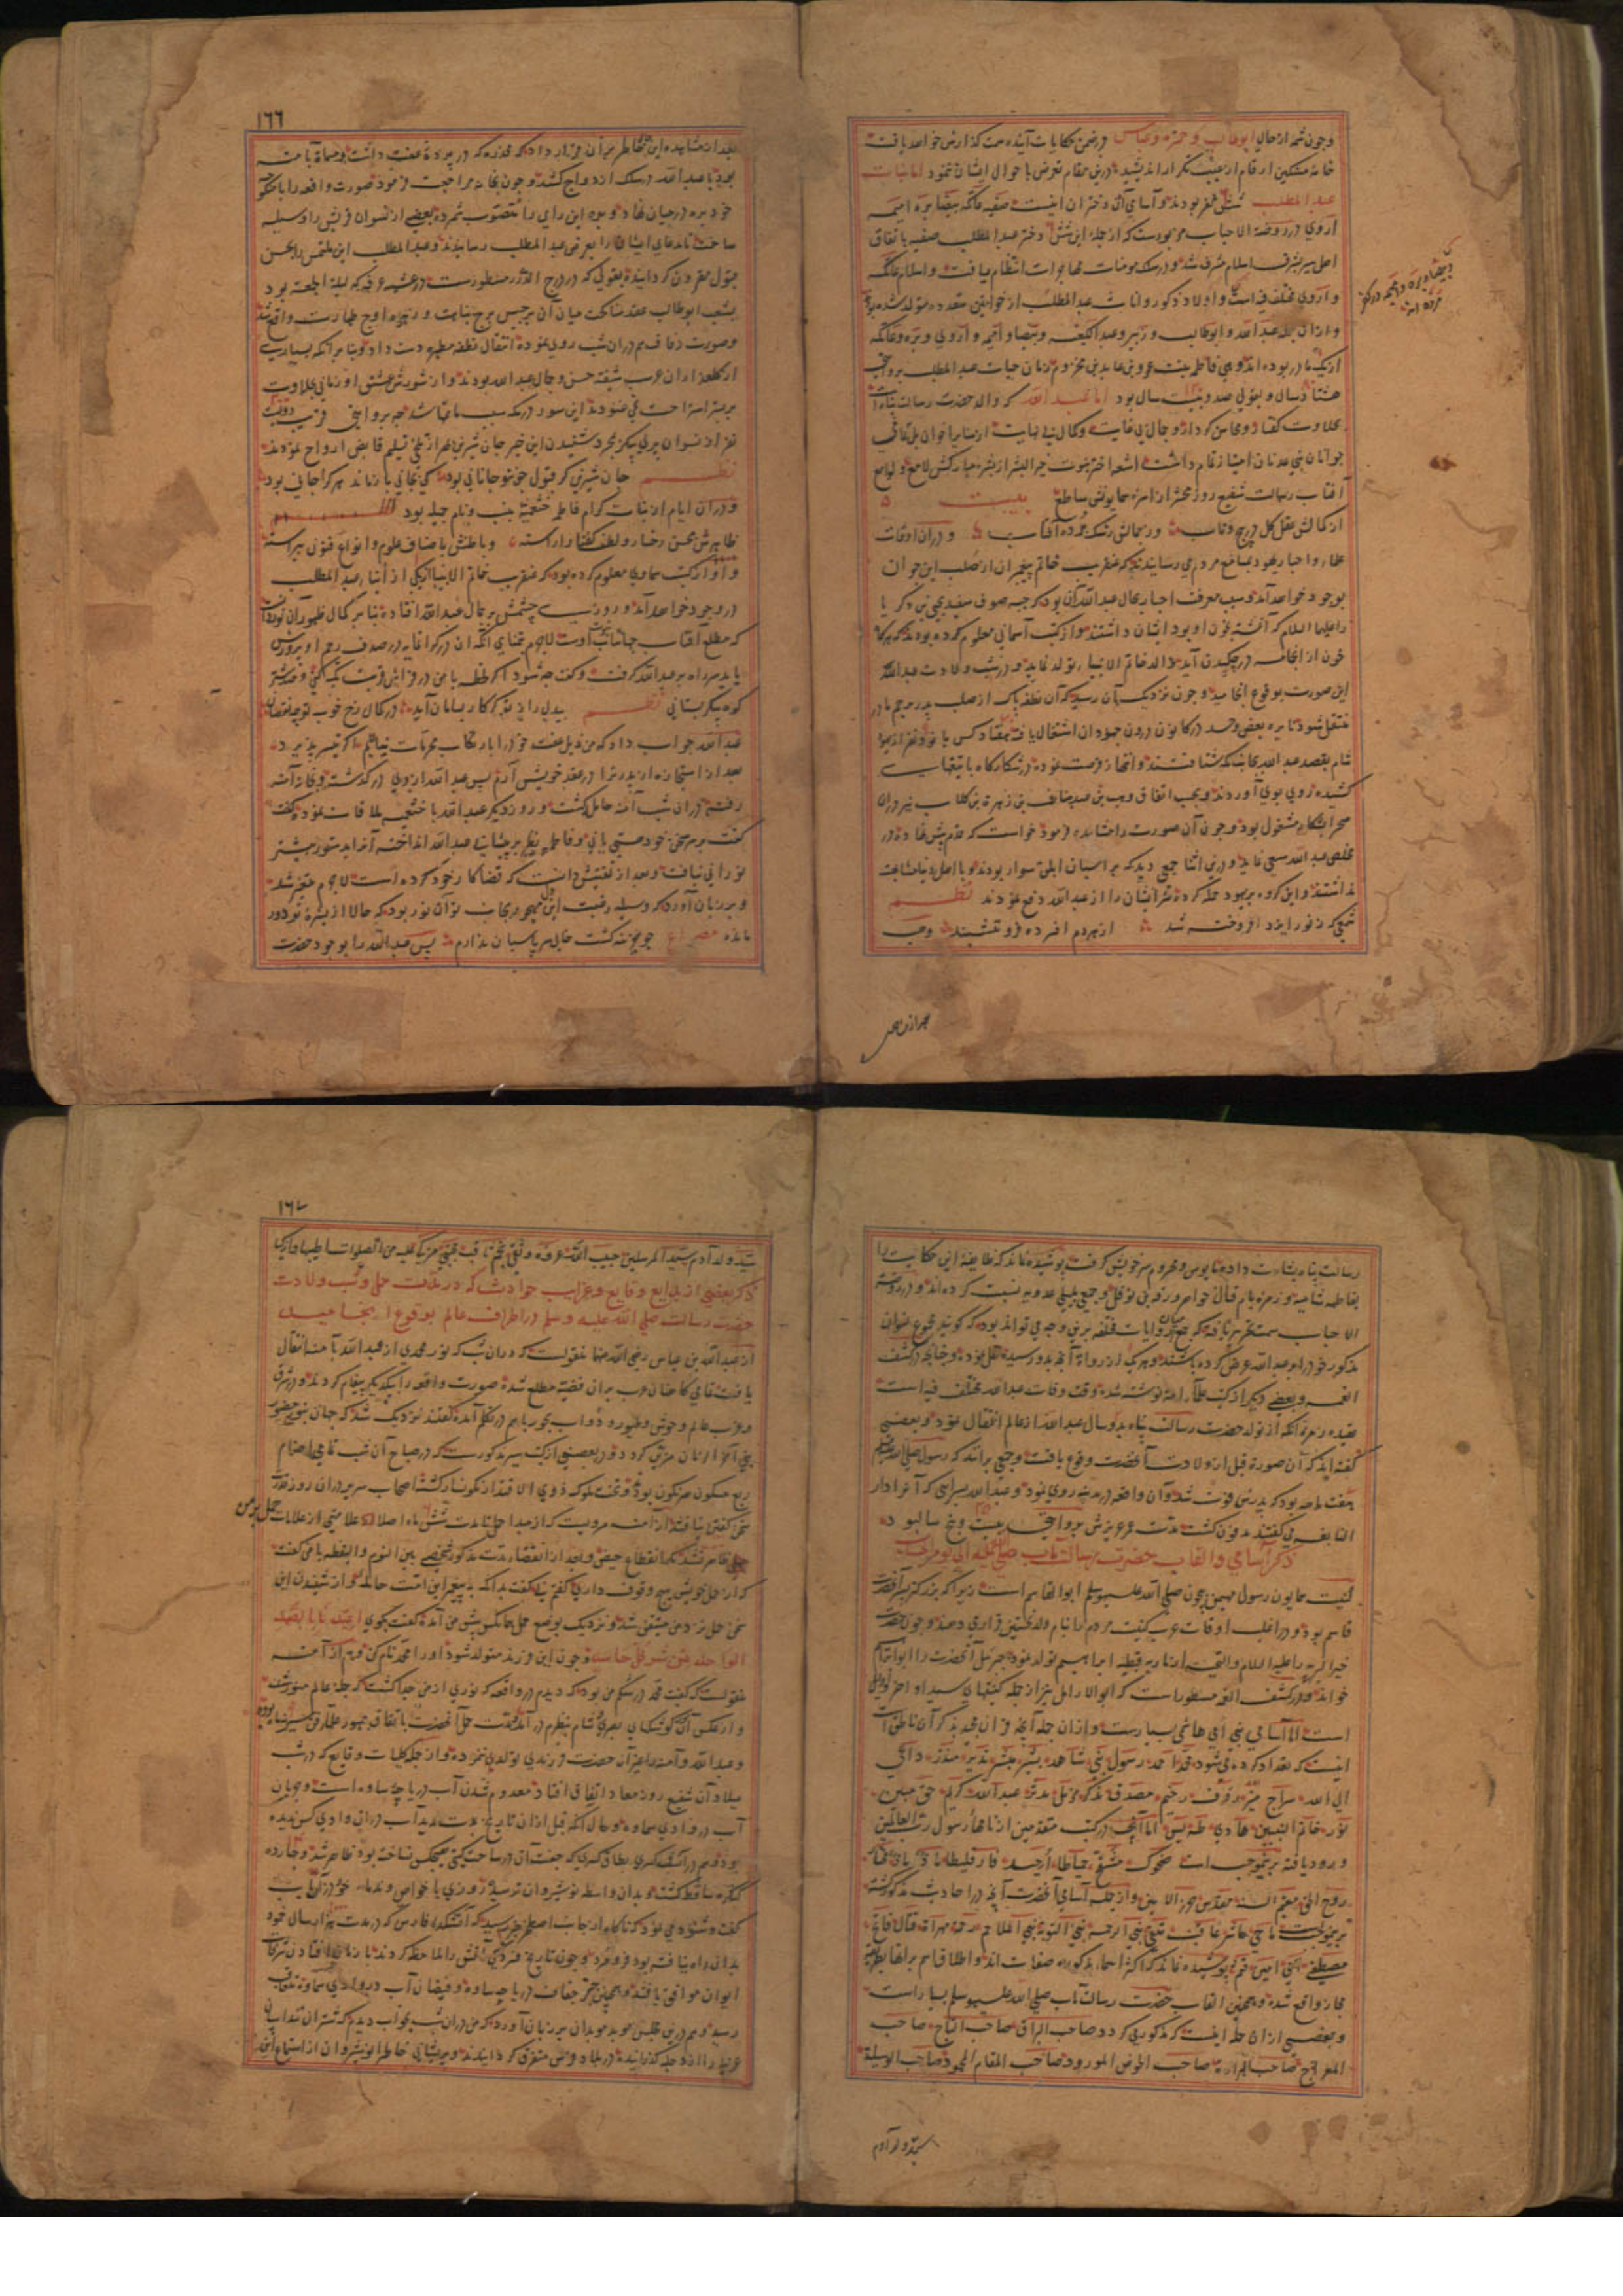 وچون شمه از حال ابوطالب و حمزه و عباس در ضمن حکایات آینده سمت گذارش خواهد یافت
خامه مشکین ارقام از عیب تکرار اندیشیده درین مقام تعرض باحوال ایشان ننمود اما بنات
عبدالمطلب شش نفر بودند و اسامی آن دختران اینست صفیه عاتکه بیضا بره امیمه
اروی در روضة الاحباب مزبورست که از جمله این شش دختر عبدالمطلب صفیه باتفاق
اهل سیر بشرف اسلام مشرف شد و در سلک مومنات مهاجرات انتظام یافت و اسلام عاتکه
و اروی مختلف فیه است و اولاد ذکور و اناث عبدالمطلب از خواتین متعدده متولد شده بود
و ازان جمله عبدالله و ابوطالب و زبیر و عبدالکعبه و بیضا و امیمه و اروی و بره و عاتکه
از یک مادر بوده‌اند و هی فاطمه بنت عمرو بن عاید بن مخزوم زمان حیات عبدالمطلب بروایتی
هشتاد سال و بقولی صد و بیست سال بود اما عبدالله که والد حضرت رسالت پناه است
بحلاوت گفتار و محاسن کردار و جمال بی غایت و کمال بی نهایت از سایر اخوان بل تمامی
جوانان بنی عدنان امتیاز تمام داشت اشعه اختر نبوت خیر البشر از بشره مبارکش لامع و لوامع
آفتاب رسالت شفیع روز محشر از ناصیه همایونش ساطع بیت
از کمالش عقل کل در پیچ و تاب وز جمالش رشک برده آفتاب و دران اوقات
علما و احبار یهود بمسامع مردم می رسانیدند که عنقریب خاتم پیغمبران از صلب این جوان
بوجود خواهد آمد و سبب معرفت احبار بحال عبدالله آن بود که جبه صوف سفید یحیی بن زکریا
را علیهما السلام که آغشته بخون او بود ایشان داشتند و از کتب آسمانی معلوم کرده بودند که هرگاه
خون از انجامه در چکیدن آید والد خاتم الانبیاء تولد نماید و در شب ولادت عبدالله
این صورت بوقوع انجامید و چون نزدیک بآن رسید که آن نطفه پاک از صلب پدر برحم مادر
منتقل شود نایره بغض و حسد در کانون درون جهودان اشتعال یافته هفتاد کس یا نود نفر از یهود
شام بقصد عبدالله بجانب مکه شتافتند و انتهاز فرصت نموده در شکارگاه با تیغهای
کشیده روی بوی آوردند و بحسب اتفاق وهب بن عبد مناف بن زهرة بن کلاب نیز دران
صحرا بشکار مشغول بود و چون آن صورت را مشاهده فرمود خواست که قدم پیش نهاده در
مخلص عبدالله سعی نماید و درین اثنا جمعی دید که بر اسپان ابلق سوار بودند و باهل دنیا مشابهت
نداشتند و این گروه بر یهود حمله کرده شر ایشان را از عبدالله دفع نمودند نظم
شمعی که ز نور ایزد افروخته شد از هر دم افسرده فرو ننشیند وهب
۱۶۶
بعد از مشاهده این بخاطر بران قرار داد که مخدره که در پرده عفت داشت و مسماة بآمنه
بود با عبدالله در سلک ازدواج کشد و چون بخانه مراجعت فرمود صورت واقعه را با منکوحه
خود بره در میان نهاد و بره این رای را مستصوب شمرده بعضی از نسوان قریش را وسیله
ساخت تا مدعای ایشان را بعرض عبدالمطلب رسانیدند و عبدالمطلب این ملتمس را بحسن
قبول مقرون گردانید و بقولی که در درج الدرر مسطورست در عشیه عرفه که لیلة الجمعه بود
بشعب ابوطالب عقد مناکحت میان آن برجیس برج نباهت و زهره اوج طهارت واقع شد
وصورت زفاف هم دران شب روی نموده انتقال نطفه مطهره دست داد و بنا بر آنکه بسیاری
از گلعذاران عرب شیفته حسن و جمال عبدالله بودند و از شورش عشق او زمانی بحلاوت
بر بستر استراحت نمی غنودند این سور در مکه سبب ماتمها شد چه بروایتی قریب دویست
نفر از نسوان پری پیکر بمجرد شنیدن این خبر جان شیرین را از تلخی تسلیم قابض ارواح نمودند
نظم جان شیرین گر قبول چون تو جانانی بود کی بجانی باز ماند هر کرا جانی بود
و دران ایام از بنات کرام فاطمه خثعمیه بنسب و نام جمیله بود
ظاهرش بحسن رخسار و لطف گفتار آراسته و باطنش باصناف علوم و انواع فنون پیراسته
و او از کتب سماوی معلوم کرده بود که عنقریب خاتم الانبیا از یکی از ابناء عبدالمطلب
در وجود خواهد آمد و روزی چشمش بر جمال عبدالله افتاده بنا بر کمال ظهور آن نور دانست
که مطلع آفتاب جهانتاب نبوت اوست لاجرم بتمنای آنکه آن در گرانمایه در صدف رحم او پرورش
یابد سر راه بر عبدالله گرفت و گفت چه شود اگر لحظه با من در فراش قربت تکیه کنی و صد شتر
کوه پیکر بستانی نظم بیدلی را از تو گر کار بسامان آید در کمال رخ خوب تو چه نقصان آید
عبدالله جواب داد که من ذیل عفت خود را بار تکاب محرمات نیالایم اگر میسر پذیرد
بعد از استجازه از پدر ترا در عقد خویش آرم پس عبدالله ازو در گذشته و بخانه آمنه
رفته دران شب آمنه حامل گشت و روز دیگر عبدالله با خثعمیه ملاقات نموده گفت
گفت بر سر سخن خود هستی یا نی و فاطمه نظر بر پیشانی عبدالله انداخته آنرا بدستور پیشتر
نورانی نیافت و بعد از تفتیش دانست که قضا کار خود کرده است لاجرم متغیر شد
و بر زبان آورد که وسیله رغبت این مهجور بجانب تو آن نور بود که حالا از بشره تو دور
مانده مصراع چو گنجینه گشت خالی سر پاسبان ندارم پس عبدالله را بوجود حضرت
رسالت پناه بشارت داده مایوس و محروم سر خویش گرفت پوشیده نماند که طایفه این حکایت را
بفاطمه شامیه و زمره بام قتال خواهر ورقة بن نوفل و جمعی بلیلی عدویه نسبت کرده‌اند و در روضة
الاحباب سمت تحریر یافته که جمع میان روایات مختلفه برین وجه می تواند بود که گویند مجموع نسوان
مذکور خود را بر عبدالله عرض کرده باشند و هر یک از رواة آنچه بدو رسیده نقل نموده و چنانچه در کشف
الغمه و بعضی دیگر از کتب علماء امامیه نوشته شده وقت وفات عبدالله مختلف فیه است
عقیده زمره آنکه از تولد حضرت رسالت پناه بدو سال عبدالله از عالم انتقال نمود و بعضی
گفته‌اند که آن صورة قبل از ولادت آنحضرت وقوع یافت و جمعی برانند که رسول صلی الله علیه وسلم
هفت ماهه بود که پدرش فوت شد و آن واقعه در مدینه روی نمود و عبدالله بسرایی که آنرا دار
النابغه می گفتند مدفون گشت مدت عمر عزیزش بروایتی بیست و پنج سال بود
ذکر اسامی و القاب حضرت رسالت مآب صلی الله علیه الی یوم الحساب
کنیت همایون رسول مهیمن بیچون صلی الله علیه وسلم ابوالقاسم است زیرا که بزرگتر پسر آنحضرت
قاسم بود و در اغلب اوقات عرب کنیت مردم را بنام ولد نخستین قرار می دهند و چون حضرت
خیر البریه را علیه السلام والتحیه از ماریه قبطیه ابراهیم تولد نمود جبرئیل آنحضرت را ابوابراهیم
خواند و در کشف الغمه مسطور است که ابوالارامل نیز از جمله کنیتهای سید اواخر و اوایل
است اما اسامی نبی امی هاشمی بسیارست و ازان جمله آنچه قرآن مجید بذکر آن ناطق است
اینست که تعداد کرده می شود محمد احمد رسول نبی شاهد بشیر مبشر نذیر منذر داعی
الی الله سراج منیر رؤف رحیم مصدق مذکر مزمل مدثر عبدالله کریم حق مبین
نور خاتم النبیین هادی طه یس اما آنچه در کتب متقدمین از نامهاء رسول رب العالمین
ورود یافته برینموجب است ضحوک مشفح حمیاطا احید فارقلیطا ماذ ماذ مختار
روح الحق مقیم السنه مقدس حرز الامیین و از جمله اسامی آنحضرت آنچه در احادیث مذکور گشته
برینموجب است ماحی حاشر عاقب مقفی نبی الرحمه نبی التوبه نبی الملاحم رحمة مهداة قتال فاتح
مصطفی امی امین قثم پوشیده نماند که اکثر اسماء مذکوره صفات اند و اطلاق اسم بر آنها بطریق
مجاز واقع شده و همچنین القاب حضرت رسالت مآب صلی الله علیه وسلم بسیار است
و بعضی ازان جمله اینست که مذکور می گردد صاحب البراق صاحب التاج صاحب
المعراج صاحب الهراوة صاحب الحوض المورود صاحب المقام المحمود صاحب الوسیلة
سید ولد آدم
۱۶۷
سید ولد آدم سید المرسلین حبیب الله
ذکر بعضی از بدایع وقایع و غرایب حوادث که در مدت حمل و شب ولادت
حضرت رسالت صلی الله علیه وسلم در اطراف عالم بوقوع انجامید
از عبدالله بن عباس رضی الله عنهما منقولست که دران شب که نور محمدی از عبدالله بآمنه انتقال
یافت تمامی کاهنان عرب بران قضیه مطلع شده صورت واقعه را بیکدیگر پیغام کردند و در شرق
و غرب عالم وحوش و طیور و دواب بحور باهم در تکلم آمده گفتند نزدیک شد که جهان بنور حضور
نبی آخر الزمان مزین گردد و در بعضی از کتب سیر مذکورست که در صباح آن شب تمامی اصنام
ربع مسکون سرنگون بود و تخت ملوک ذوی الاقتدار نگونسار گشته اصحاب سریر دران روز قدرت
سخن گفتن نیافتند از آمنه مرویست که از مبداء حمل تا مدت شش ماه اصلا علامتی از علامات حمل بر من
ظاهر نشد مگر انقطاع حیض و بعد از انقضاء مدت مذکور شخصی بین النوم والیقظه با من گفت
که از حمل خویش هیچ وقوف داری گفتم نی گفت بدانکه به پیغمبر این امت حامله و از شنیدن این
سخن حمل نزد من متیقن شد و نزدیک بوضع حمل همان کس پیش من آمده گفت بگوی اعیذه بالصمد
الواحد من شر کل حاسد و چون این فرزند متولد شود او را محمد نام کن و هم از آمنه
منقولست که گفت محمد در شکم من بود که دیدم در واقعه که نوری از من جدا گشت که جمله عالم منور شد
و از عکس آن کوشکهای بصری شام بنظرم در آمد
و عبدالله و آمنه را غیر آن حضرت فرزندی تولد ننموده و از جمله کلیات وقایع که در شب
میلاد آن شفیع روز معاد اتفاق افتاد معدوم شدن آب دریاچه ساوه است و جریان
آب در وادی سماوه و حال آنکه قبل ازان تاریخ بمدت مدید آب دران وادی کس ندیده
بود و هم دران شب کسری طاق کسری که جفت آن در ساحت گیتی هیچکس نساخته بود ظاهر شد و چهارده
کنگره ساقط گشت و بدان واسطه نوشیروان ترسیده روزی با خواص و ندماء خود دران باب
گفت و شنود می نمود که ناگاه از جانب اصطخر خبر رسید که آتشکده فارس که در مدت هزار سال خمود
بدان راه نیافته بود فرو مرد و چون تاریخ فسردگی آتش را ملاحظه کردند با زمان افتادن شرفات
ایوان موافق یافتند و همچنین خبر جفاف دریاچه ساوه و فیضان آب در وادی سماوه متعاقب
رسید و هم درین مجلس موبد موبدان بر زبان آورد که من دران شب بخواب دیدم که شتران تند اسپان
عربی را از دجله گذرانیده در بلاد فرس متفرق گردانیدند و پریشانی خاطر انوشیروان از استماع این